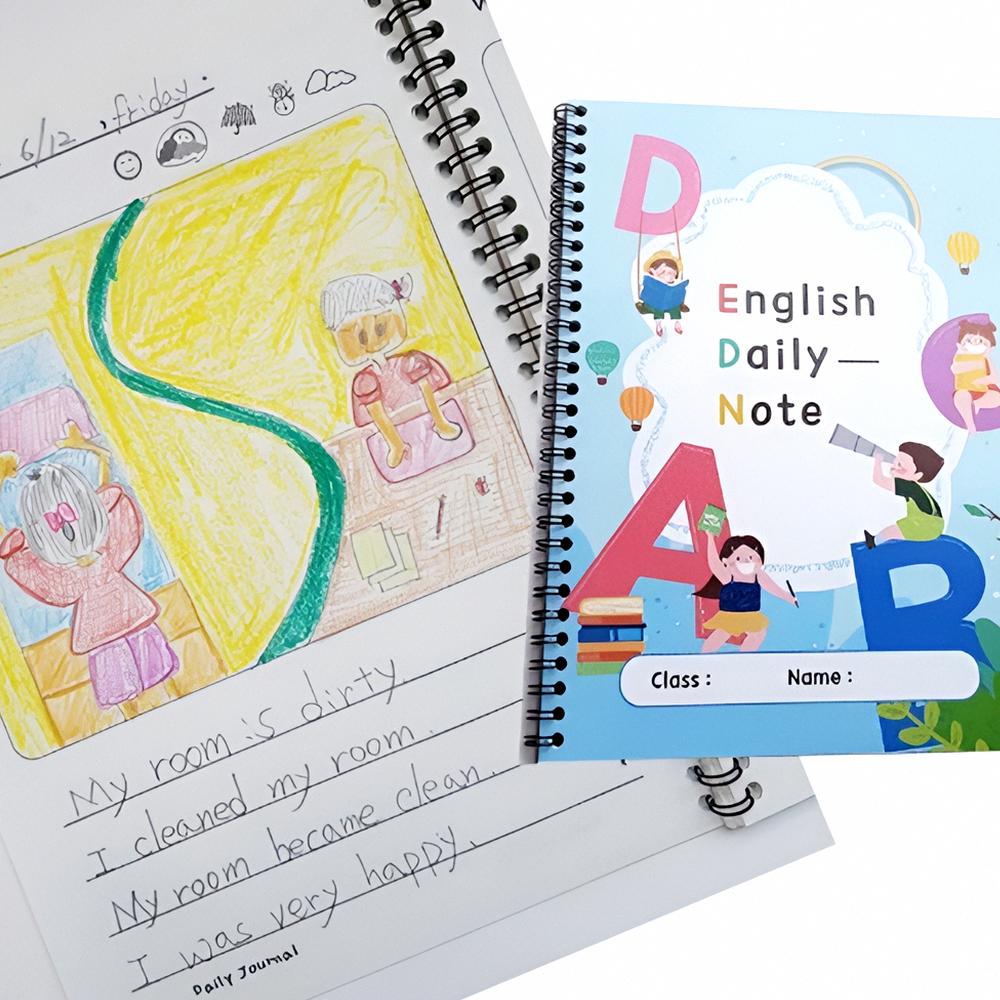 6/12 , friday.
My room is dirty.
I cleaned my room.
My room became clean.
I was very happy.
Daily Journal
D
English
Daily
Note
A
B
Class :
Name :